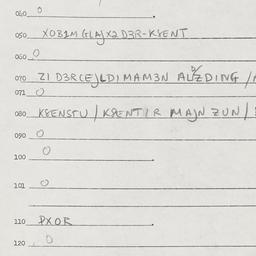 040 0
050 XOB1M GLAJX2 D3R-K8ENT
060 0
070 ZI D3R(EJLDIMAM3N AUZDING /
071 0
080 K8ENSTU / K8ENTIR MAJN ZUN /
090 0
100 0
101 0
110 PXOR
120 0